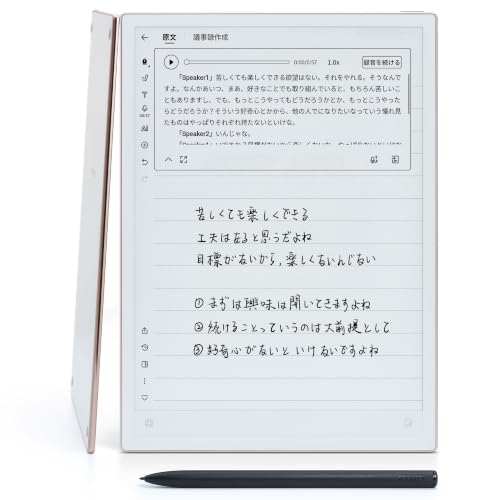 原文 議事録作成
0:00/0:57 1.0x 録音を続ける
「Speaker1」苦しくても楽しくできる欲望はない。それをやれる。そうなんで
すよ。なんかあいつ、まあ、好きなことでも取り組んでいると、もちろん苦しいこ
ともありますし、でも、もっとこうやってもどうだろうかとか、もっとこうやった
らどうだろうか？そういう好奇心とかから、他の人になりたいなっていう憧れ見
たものはやっぱりそれぞれ持たないといけな。
「Speaker2」いんじゃな。
00:57
苦しくても楽しくできる
工夫はあると思うだよね
目標がないから,楽しくないんじない
①まずは興味は聞いてきますよね
②続けることっていうのは大前提として
③好奇心がないといけないですよね